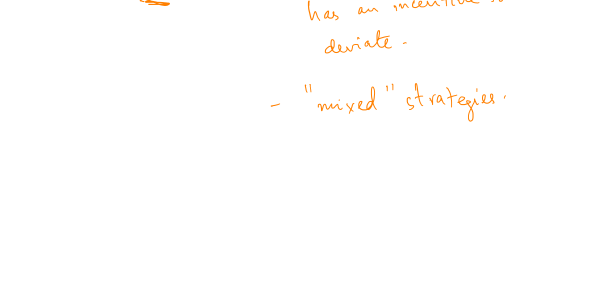 has an incentive
deviate.
- "mixed" strategies.